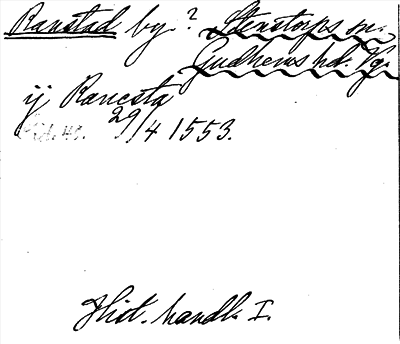 Ranstad by? Stenstorps sn.
Gudhems hd. Vg.
ij Rancsta
29/4 1553.
Hist. handl. I.